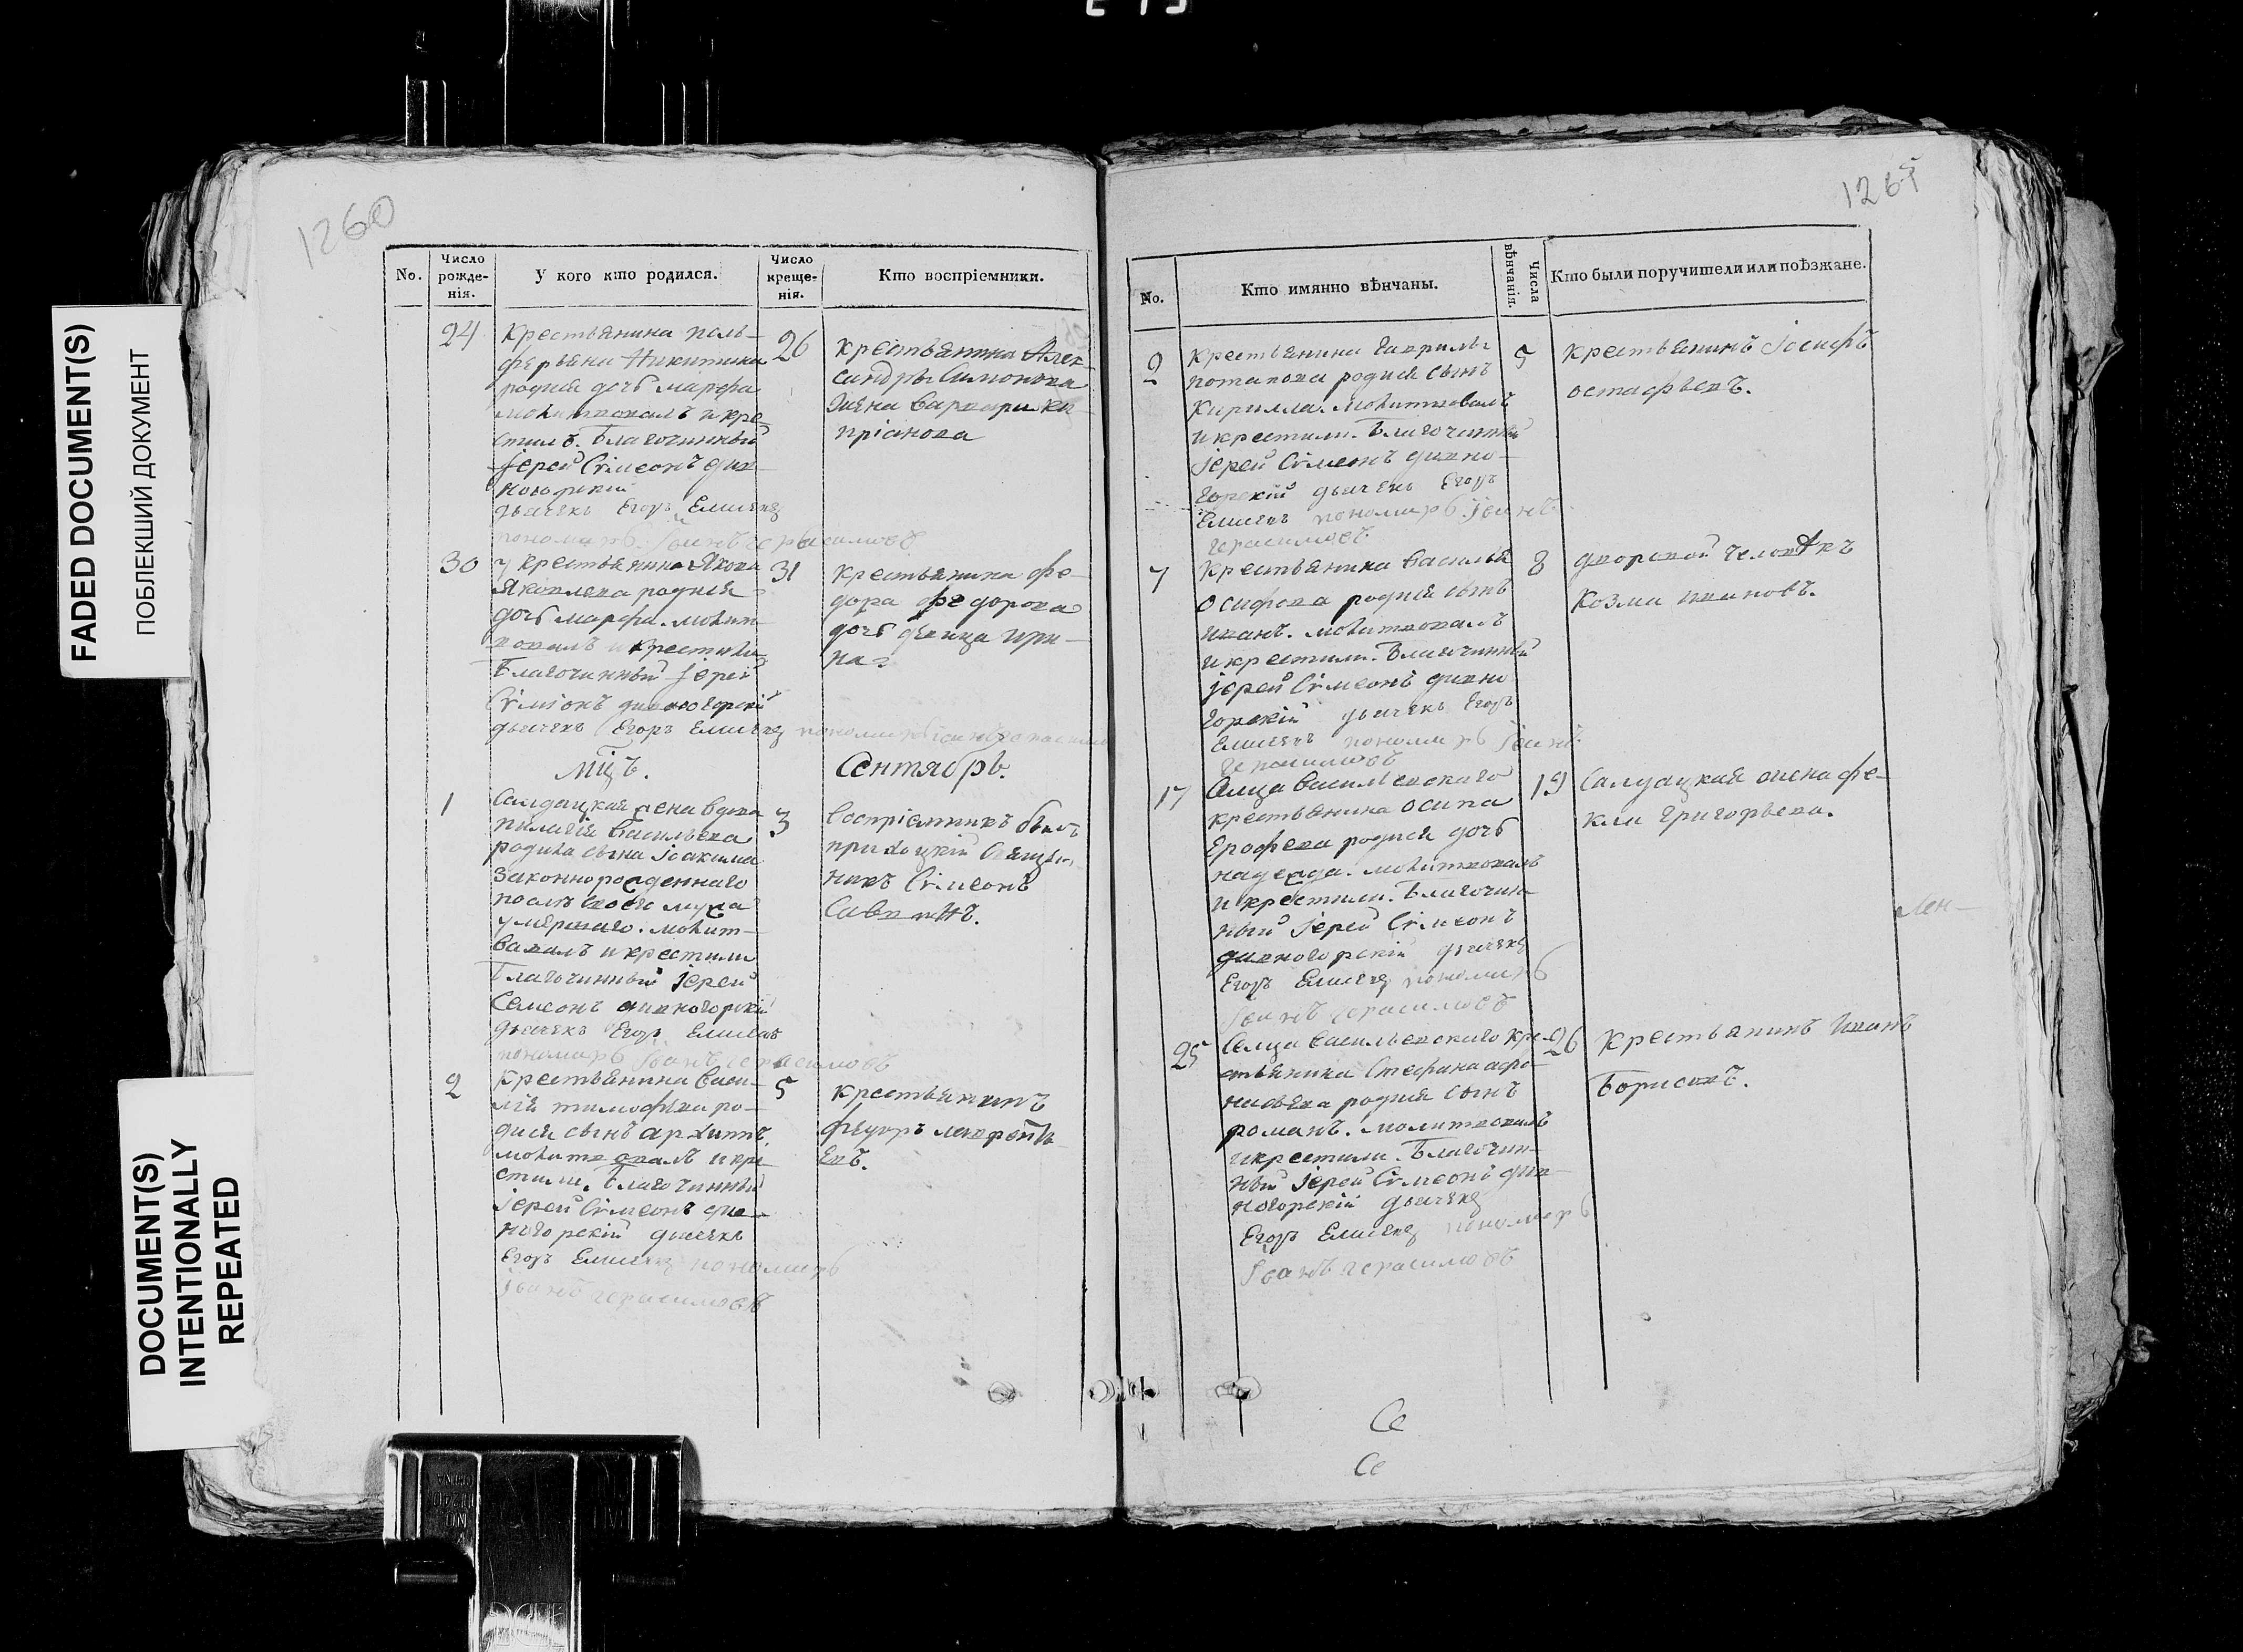 FADED DOCUMENT(S)
ПОБЛЕКШИЙ ДОКУМЕНТ
DOCUMENT(S)
INTENTIONALLY
REPEATED
1260
No.
Число рожде-нія.
У кого кто родился.
Число креще-нія.
Кто воспріемники.
24
Крестьянина
Никитина
родися дочь марфа
молитвовалъ и кре
стилъ. Благочинный
Іерей Сѵмеонъ див
ногорскій
дьячекъ Егоръ Елисеевъ
пономарь Іванъ Герасимовъ
26
крестьянина Алек
сандры Симонова
жена варвара ки
пріанова
30
у крестьянина Якова
Яковлева родися
дочь марфа. молит
вовалъ и крестили
Благочинный Іерей
Сѵміонъ дивногорскій
дьячекъ Егоръ Елисеевъ пономарь
31
крестьянина фе
дора федорова
дочь девица ири
на
мцъ.
Сентябрь.
1
Салдацкая жена вдова
пилагія Васильева
родила сына Іоакима
законнорожденнаго
послѣ своего мужа
умершаго. молит
вавалъ и крестили
Благочинный Іерей
Семеонъ дивногорскій
дьячекъ Егоръ Елисеевъ
пономарь Іванъ Герасимовъ
3
Воспріемникъ былъ
приходцкій Свеще
никъ Сѵмеонъ
2
Крестьянина Васи
лія тимофѣева ро
дися сынъ архиппъ.
молитвовалъ и кре
стили. Благочинный
Іерей Сѵмеонъ див
ногорскій дьячекъ
Егоръ Елисеевъ пономарь
Іванъ Герасимовъ
5
крестьянинъ
федоръ лаврентъ
евъ.
1265
No.
Кто имянно вѣнчаны.
Числа вѣнчанія.
Кто были поручители или поѣзжане.
2
крестьянина гаврилы
потапова родися сынъ
Кирилла. молитвовалъ
и крестили. Благочинный
Іерей Сѵмеонъ дивно
горскій дьячекъ Егоръ
Елисеевъ пономарь Іванъ
герасимовъ
5
крестьянинъ Іосифъ
остафьевъ.
7
крестьянина Василья
осифова родися сынъ
иванъ. молитвовалъ
и крестили. Благочинный
Іерей Сѵмеонъ дивно
горскій дьячекъ Егоръ
Елисеевъ пономарь Іванъ
Герасимовъ
8
дворовой человѣкъ
козма ивановъ.
17
Селца Васильевскаго
крестьянина осипа
Ерофеева родися дочь
надежда. молитвовалъ
и крестили. Благочин
ный Іерей Сѵмеонъ
дивногорскій дьячекъ
Егоръ Елисеевъ пономарь
Іванъ Герасимовъ
19
Салдацкая жена фе
кла Григорьева.
Лен—
25
Селца Васильевскаго кре
стьянина Стефана афо
насьева родися сынъ
романъ. молитвовалъ
и крестили. Благочин
ный Іерей Сѵмеонъ див
ногорскій дьячекъ
Егоръ Елисеевъ пономарь
Іванъ герасимовъ
26
крестьянинъ иванъ
Борисовъ.
Се
Се